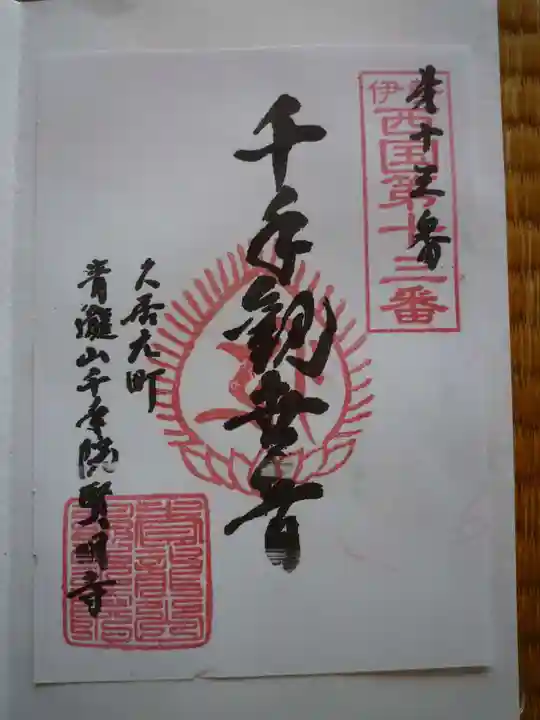 第十三番
伊勢西国第十三番
千手觀世音
久居元町
青瀧山千手院賢明寺